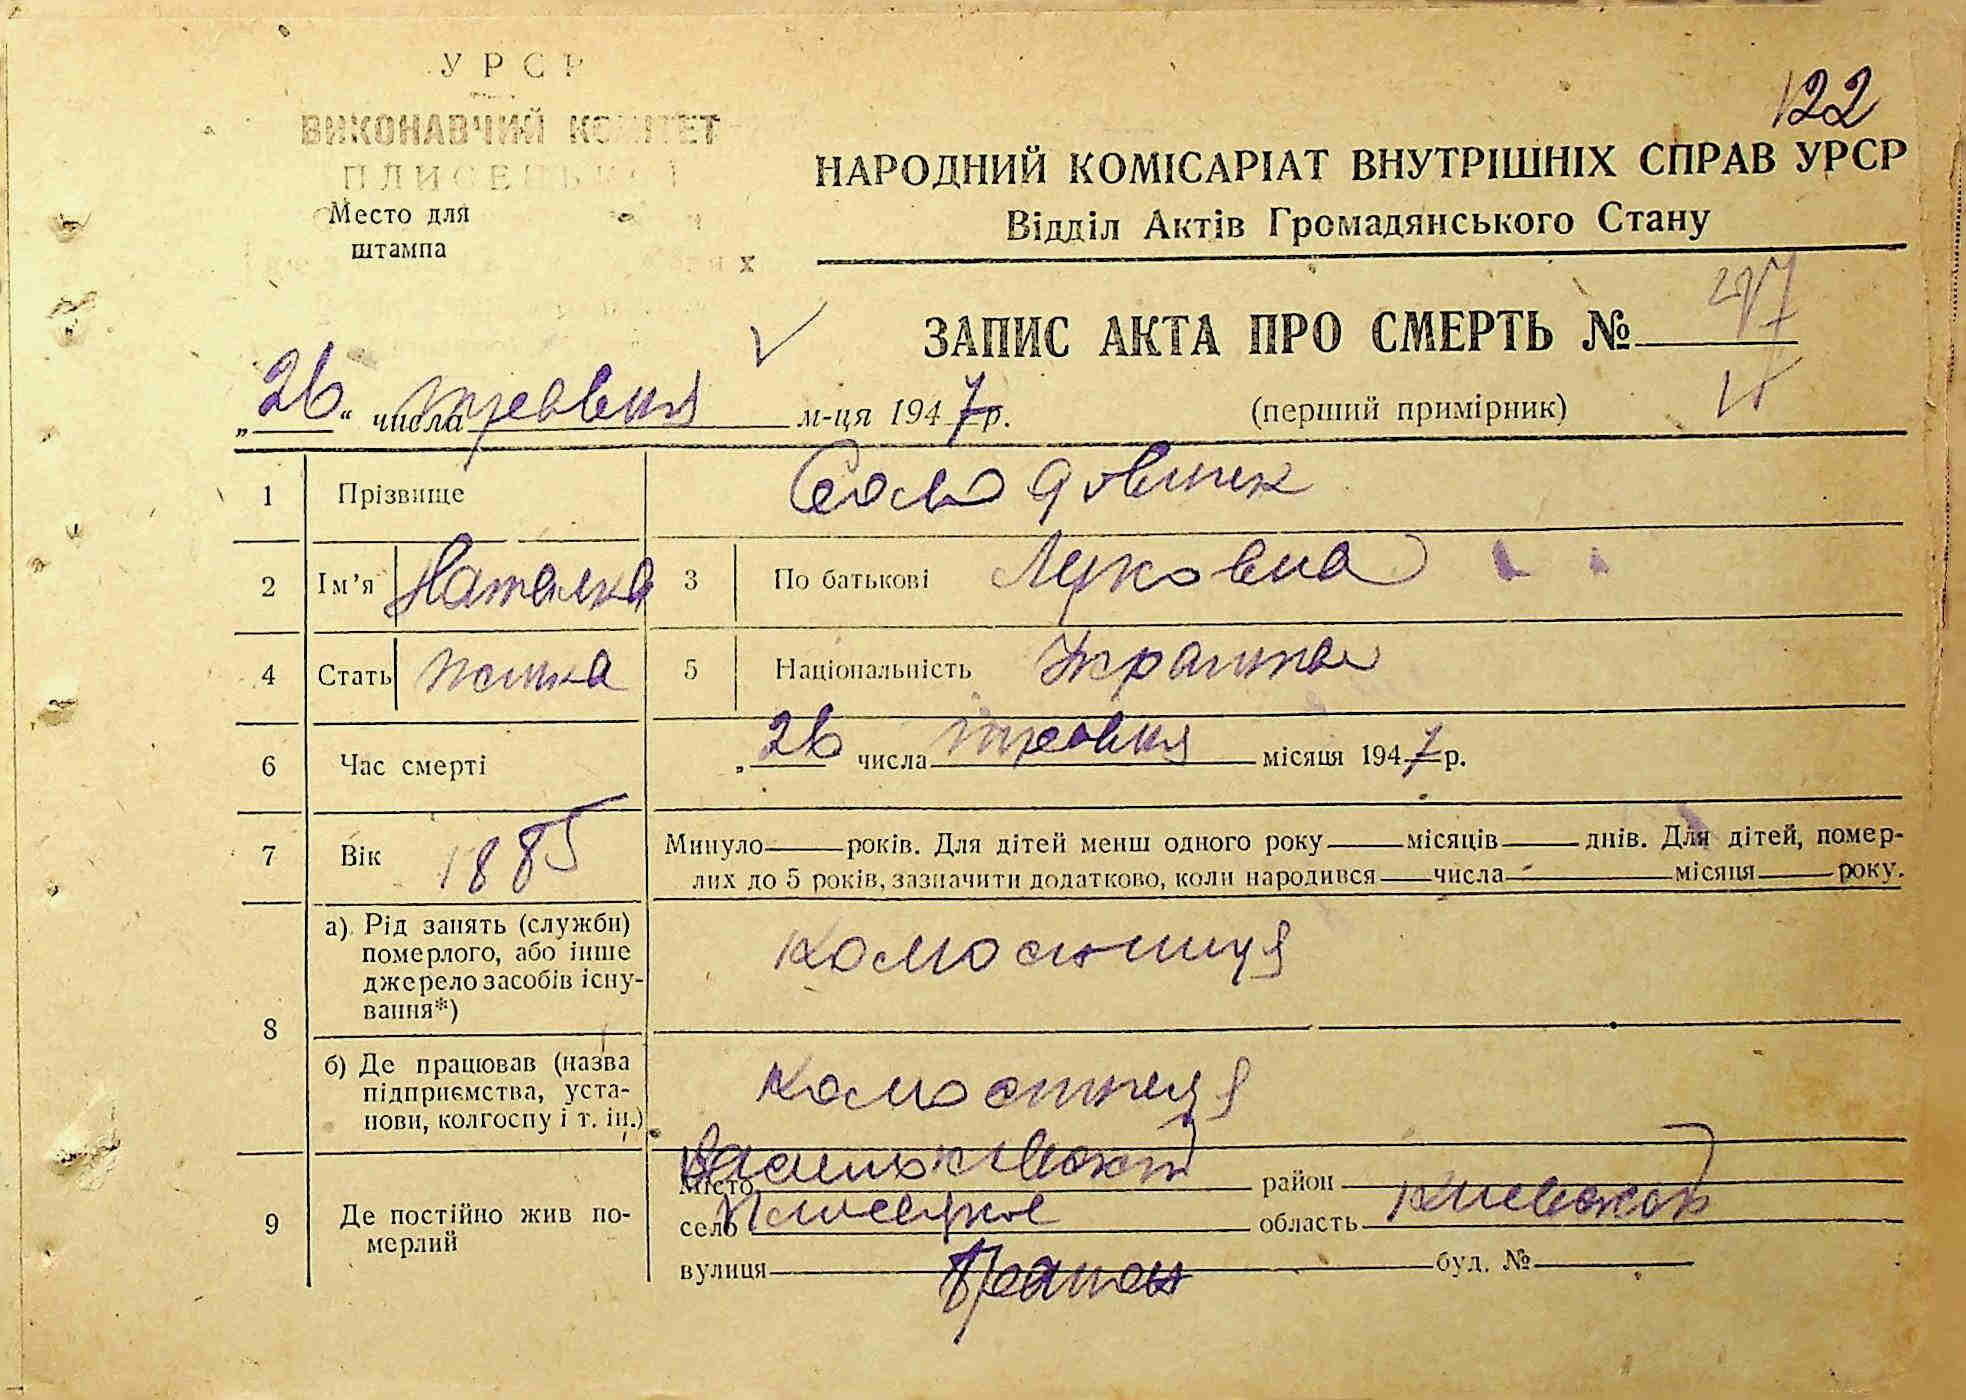 122
УРСР
ВИКОНАВЧИЙ КОМІТЕТ
ПЛИСЕЦЬКОЇ
Место для
штампа
НАРОДНИЙ КОМІСАРІАТ ВНУТРІШНІХ СПРАВ УРСР
Відділ Актів Громадянського Стану
ЗАПИС АКТА ПРО СМЕРТЬ №
„26“ числа травня м-ця 1947 р.
(перший примірник)
1 Прізвище Солодовник
2 Ім'я Наталка 3 По батькові Луковна
4 Стать жінка 5 Національність
6 Час смерті „26 числа травня місяця 1947 р.
7 Вік 1885 Минуло — років. Для дітей менш одного року — місяців — днів. Для дітей, помер-
лих до 5 років, зазначити додатково, коли народився — числа — місяця — року.
8 а) Рід занять (служби)
померлого, або інше
джерело засобів існу-
вання*)
б) Де працював (назва
підприємства, уста-
нови, колгоспу і т. ін.)
9 Де постійно жив по-
мерлий
місто район
село Плисецьке область
вулиця буд. №